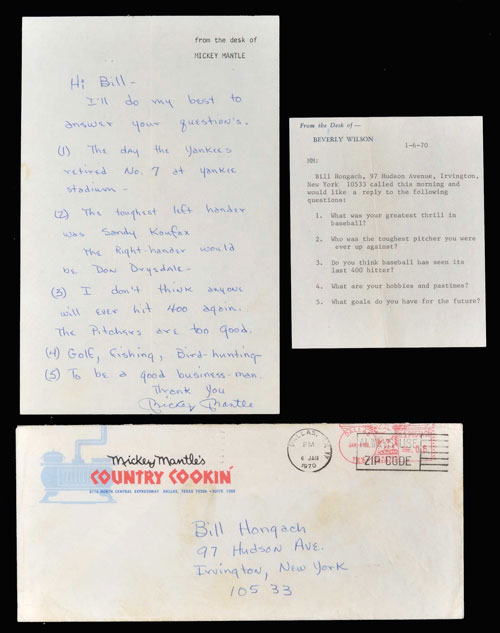 from the desk of
MICKEY MANTLE
Hi Bill -
I'll do my best to
answer your question's.
(1) The day the Yankees
retired No. 7 at Yankee
stadium -
(2) The toughest left hander
was Sandy Koufax
The Right-hander would
be Don Drysdale -
(3) I don't think anyone
will ever hit 400 again.
The Pitchers are too good.
(4) Golf, Fishing, Bird-hunting
(5) To be a good business-man.
Thank You
Mickey Mantle
From the Desk of—
BEVERLY WILSON
1-6-70
MM:
Bill Hongach, 97 Hudson Avenue, Irvington,
New York 10533 called this morning and
would like a reply to the following
questions:
1. What was your greatest thrill in
baseball?
2. Who was the toughest pitcher you were
ever up against?
3. Do you think baseball has seen its
last 400 hitter?
4. What are your hobbies and pastimes?
5. What goals do you have for the future?
Mickey Mantle's
COUNTRY COOKIN'
NORTH CENTRAL EXPRESSWAY DALLAS, TEXAS
DALLAS, TX
PM
6 JAN
1970
USE
ZIP CODE
Bill Hongach
97 Hudson Ave.
Irvington, New York
10533